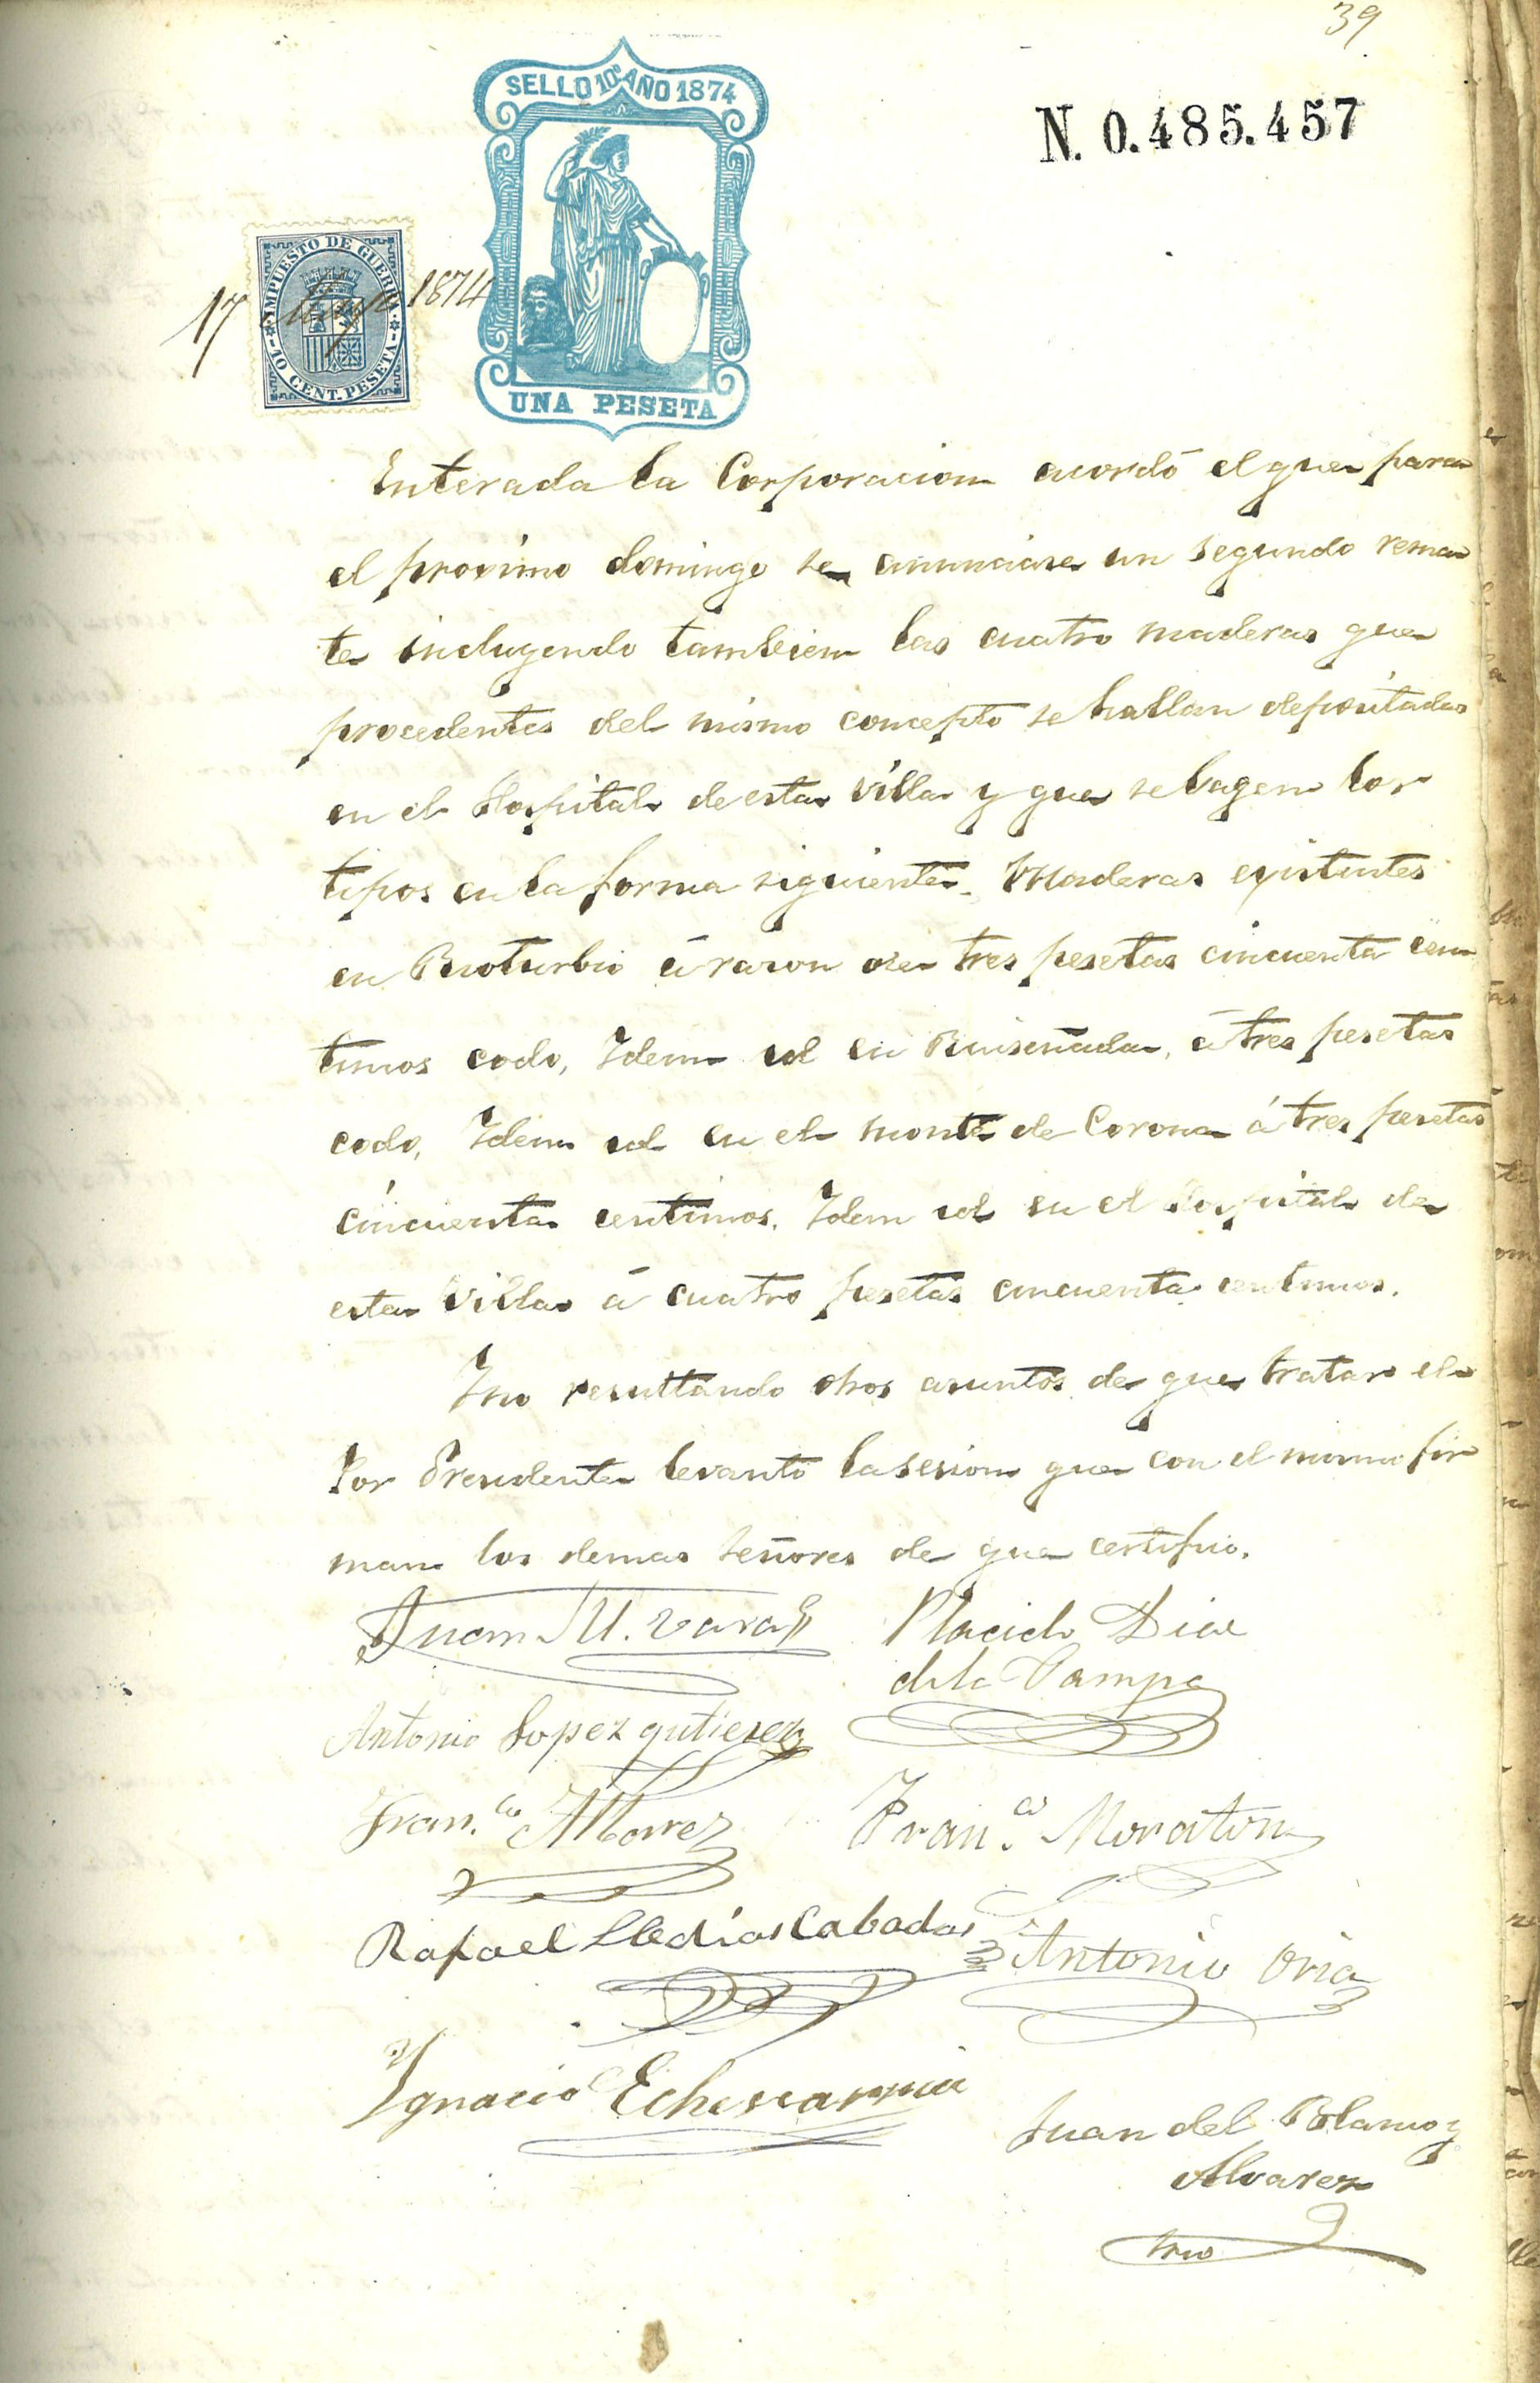 39
SELLO 10º AÑO 1874
N. 0.485.457
IMPUESTO DE GUERRA
10 CENT. PESETA
17 Mayo 1874
UNA PESETA
Enterada la Corporacion acordó el que para
el proximo domingo se anunciase un segundo rema
te incluyendo tambien las cuatro maderas que
procedentes del mismo concepto se hallan depositadas
en el Hospital de esta villa y que se bagen los
tipos en la forma siguiente. Maderas existentes
en Rioturbio á razon de tres pesetas cincuenta cen
timos codo, Idem id en Ruiseñada, á tres pesetas
codo, Idem id en el monte de Corona á tres pesetas
cincuenta centimos. Idem id en el Hospital de
esta Villa á cuatro pesetas cincuenta centimos.
Y no resultando otros asuntos de que tratar el
Sor Presidente levantó la sesion que con el mismo fir
man los demas señores de que certifico.
Juan M. Vara
Placido Diaz
de la Campa
Antonio Lopez gutierez
Fran.co
Fran.co Moraton
Rafael Lledias Cabadas
Antonio Oria
Ygnacio Echevarria
Juan del Blanco y
Alvarez
Srio